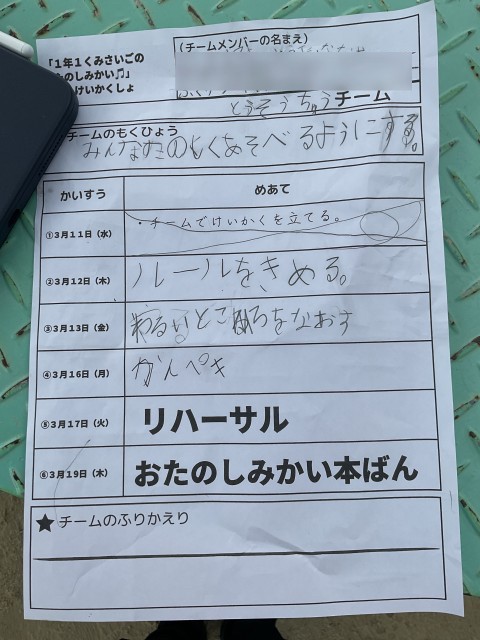 「1年1くみさいごの
たのしみかい♫」
けいかくしょ
(チームメンバーの名まえ)
とうそうちゅうチーム
チームのもくひょう
みんなたのしくあそべるようにする。
かいすう
めあて
①3月11日(水)
・チームでけいかくを立てる。
②3月12日(木)
ルールをきめる。
③3月13日(金)
わるいところをなおす
④3月16日(月)
かんペキ
⑤3月17日(火)
リハーサル
⑥3月19日(木)
おたのしみかい本ばん
★チームのふりかえり